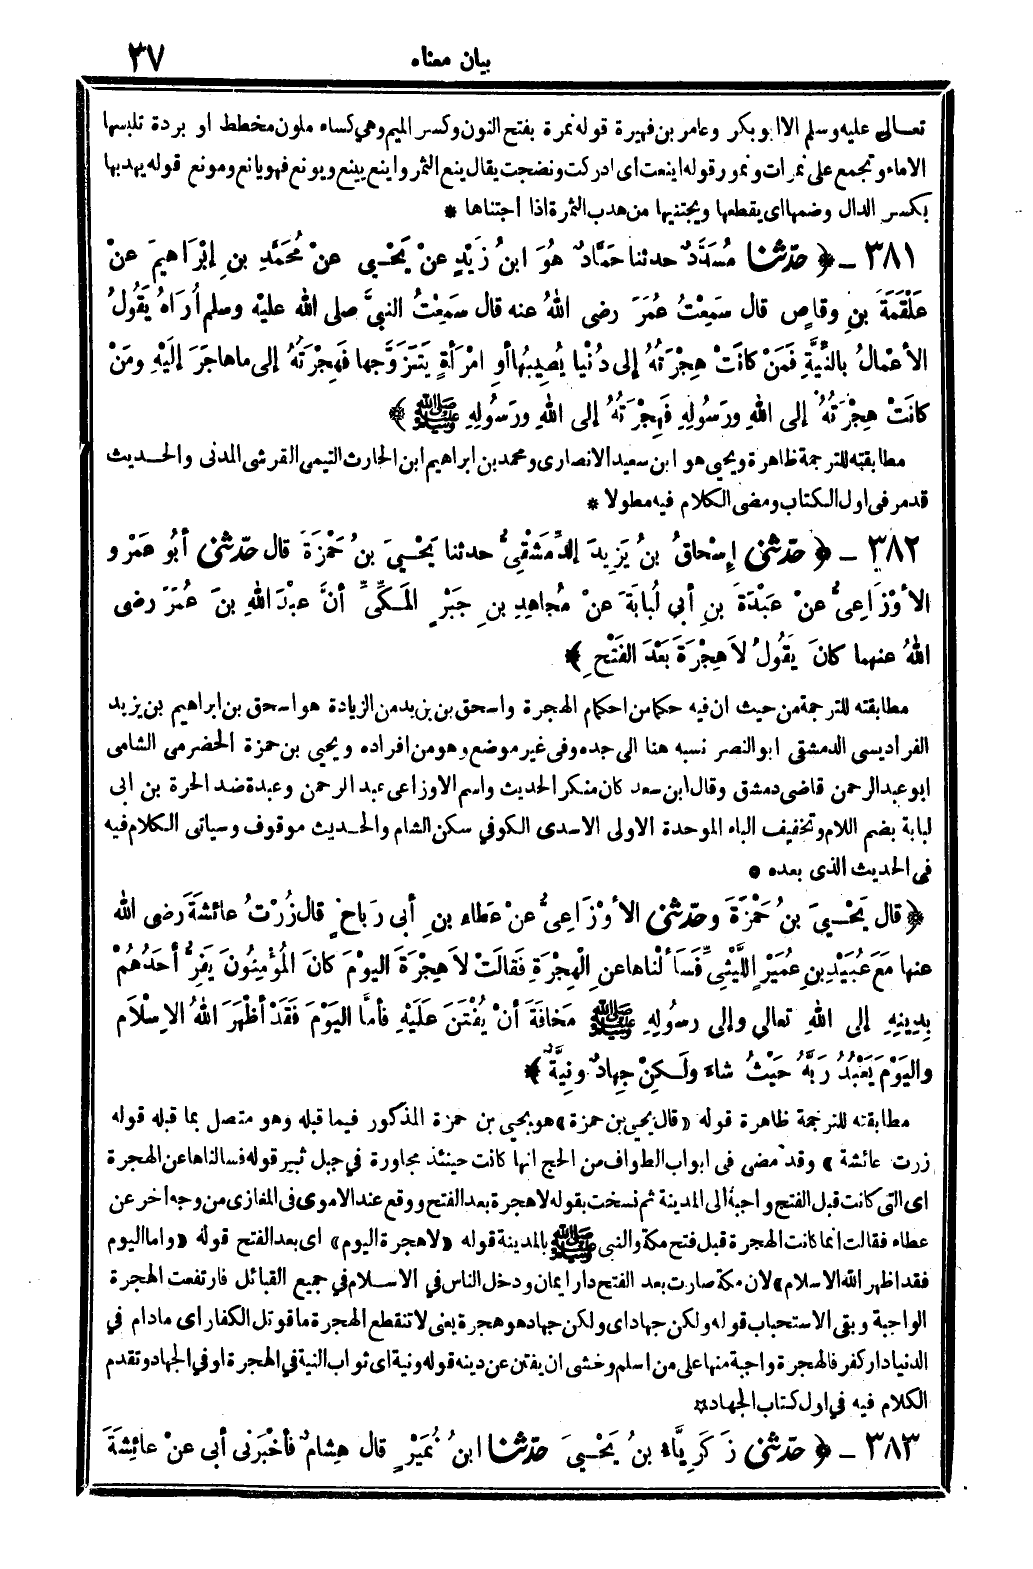 بيان معناه
٣٧
تعالى عليه وسلم الا ابو بكر وعامر بن فهيرة قوله نمرة بفتح النون وكسر الميم وهي كساء ملون مخطط او بردة تلبسها
الاماء وتجمع على نمرات ونمور قوله اينعت اى ادركت ونضجت يقال ينع الثمر واينع يينع ويونع فهو يانع ومونع قوله يهدبها
بكسر الدال وضمها اى يقطعها ويجتنيها من هدب الثمرة اذا اجتناها *
٣٨١ – ﴿ حَدَّثَنَا مُسَدَّدٌ حدثنا حَمَّادٌ هُوَ ابنُ زَيْدٍ عنْ يَحْيى عنْ مُحَمَّدِ بنِ إبْرَاهِيمَ عنْ
عَلْقَمَةَ بنِ وقاصٍ قال سَمِعْتُ عُمَرَ رضى اللهُ عنه قال سَمِعْتُ النبيَّ صلى الله عليْه وسلم أُرَاهُ يَقُولُ
الأعْمالُ بالنِّيَّةِ فَمَنْ كانَتْ هِجْرَتُهُ إلى دُنْيا يُصِيبُها أوِ امْرَأةٍ يَتَزَوَّجها فَهِجْرَتُهُ إلى ما هاجَرَ إلَيْهِ ومَنْ
كانَتْ هِجْرَتُهُ إلى اللهِ ورَسُولِهِ فَهِجْرَتُهُ إلى اللهِ ورَسُولِهِ ﷺ ﴾
مطابقته للترجمة ظاهرة ويحيى هو ابن سعيد الانصارى ومحمد بن ابراهيم ابن الحارث التيمى القرشى المدنى والحديث
قد مر فى اول الكتاب ومضى الكلام فيه مطولا *
٣٨٢ – ﴿ حَدَّثَنِى إسْحاقُ بنُ يَزِيدَ الدِّمَشْقِىُّ حدثنا يَحْيىَ بنُ حَمْزَةَ قال حَدَّثَنِى أبُو عَمْرٍو
الأوْزَاعِىُّ عنْ عَبْدَةَ بنِ أبي لُبابَةَ عنْ مُجاهِدِ بنِ جَبْرٍ المَكِّيِّ أنَّ عبْدَ اللهِ بنَ عُمَرَ رضى
اللهُ عنهما كانَ يَقُولُ لاَ هِجْرَةَ بَعْدَ الفَتْحِ ﴾
مطابقته للترجمة من حيث ان فيه حكما من احكام الهجرة واسحق بن يزيد من الزيادة هو اسحق بن ابراهيم بن يزيد
الفراديسى الدمشقى ابو النصر نسبه هنا الى جده وفى غير موضع وهو من افراده ويحيى بن حمزة الحضرمى الشامى
ابو عبد الرحمن قاضى دمشق وقال ابن سعد كان منكر الحديث واسم الاوزاعى عبد الرحمن وعبدة ضد الحرة بن ابى
لبابة بضم اللام وتخفيف الباء الموحدة الاولى الاسدى الكوفي سكن الشام والحديث موقوف وسياتى الكلام فيه
فى الحديث الذى بعده *
﴿ قال يَحْيىَ بنُ حَمْزَةَ وحَدَّثَنِى الأوْزَاعِىُّ عنْ عَطاءِ بنِ أبى رَباحٍ قال زُرْتُ عائشَةَ رضى الله
عنها مَعَ عُبَيْدِ بنِ عُمَيْرٍ اللَّيْثِىِّ فَسَألْناها عنِ الهِجْرَةِ فَقالَتْ لاَ هِجْرَةَ اليوْمَ كانَ المُؤْمِنُونَ يَفِرُّ أحَدُهُمْ
بِدِينِهِ إلى اللهِ تعالى وإلى رسُولِهِ ﷺ مَخافَةَ أنْ يُفْتَنَ عَلَيْهِ فأمَّا اليَوْمَ فَقَدْ أظْهَرَ اللهُ الإسْلاَمَ
واليَوْمَ يَعْبُدُ رَبَّهُ حَيْثُ شاءَ ولَكِنْ جِهادٌ ونِيَّةٌ ﴾
مطابقته للترجمة ظاهرة قوله «قال يحيى بن حمزة» هو يحيى بن حمزة المذكور فيما قبله وهو متصل بما قبله قوله
زرت عائشة » وقد مضى فى ابواب الطواف من الحج انها كانت حينئذ مجاورة في جبل ثبير قوله فسالناها عن الهجرة
اى التى كانت قبل الفتح واجبة الى المدينة ثم نسخت بقوله لا هجرة بعد الفتح ووقع عند الاموى فى المغازى من وجه اخر عن
عطاء فقالت انما كانت الهجرة قبل فتح مكة والنبي ﷺ بالمدينة قوله «لا هجرة اليوم» اى بعد الفتح قوله «واما اليوم
فقد اظهر الله الاسلام» لان مكة صارت بعد الفتح دار ايمان ودخل الناس في الاسلام في جميع القبائل فارتفعت الهجرة
الواجبة وبقى الاستحباب قوله ولكن جهاد اى ولكن جهاد هو هجرة يعنى لا تنقطع الهجرة ما قوتل الكفار اى مادام في
الدنيا دار كفر فالهجرة واجبة منها على من اسلم وخشى ان يفتن عن دينه قوله ونية اى ثواب النية في الهجرة او في الجهاد وتقدم
الكلام فيه في اول كتاب الجهاد *
٣٨٣ – ﴿ حَدَّثَنِى زَكَرِيَّاءُ بنُ يَحْيىَ حَدَّثَنَا ابنُ نُمَيْرٍ قال هِشامٌ فأخْبَرَنى أبى عنْ عائِشَةَ